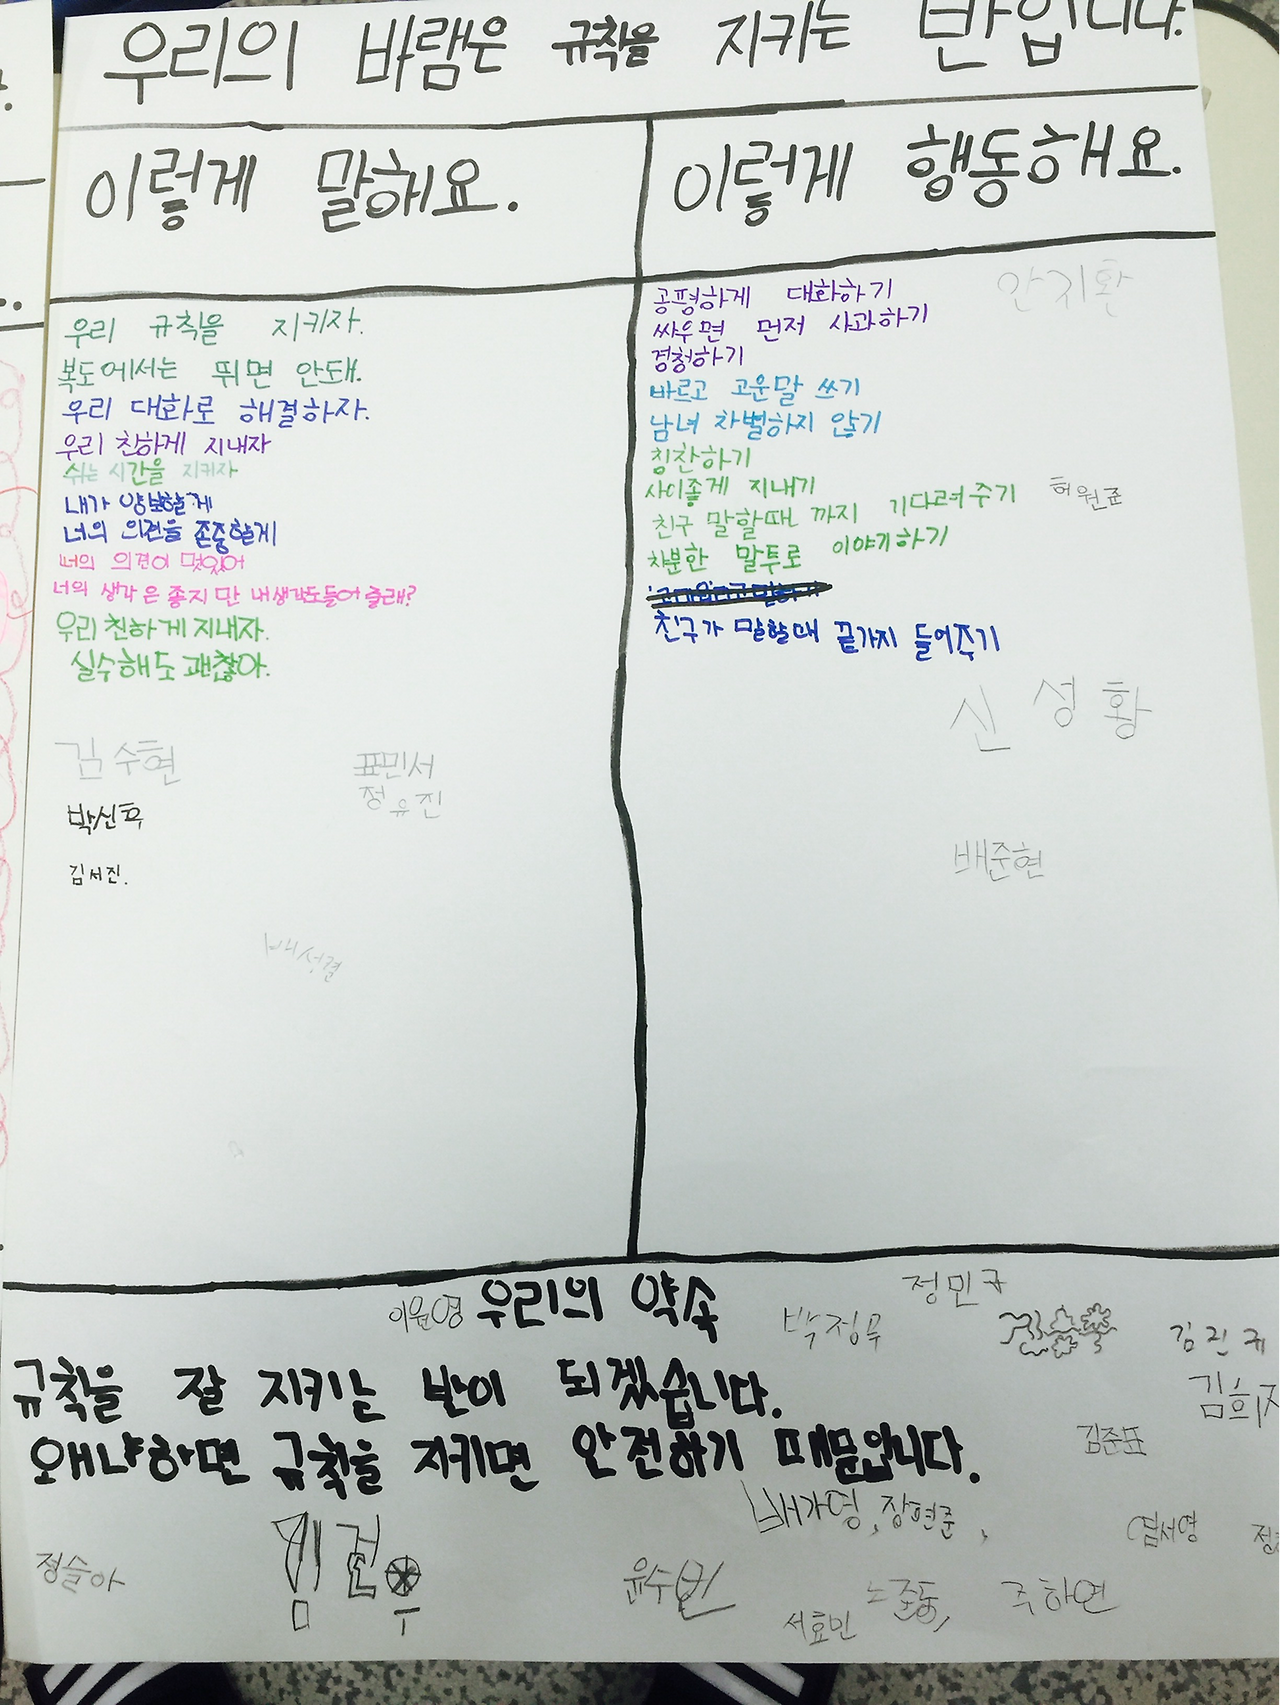 우리의 바램은 규칙을 지키는 반입니다.
이렇게 말해요.
우리 규칙을 지키자.
복도에서는 뛰면 안돼.
우리 대화로 해결하자.
우리 친하게 지내자
쉬는 시간을 지키자
내가 양보할게
너의 의견을 존중할게
너의 의견이 멋있어
너의 생각은 좋지만 내생각도들어 줄래?
우리 친하게 지내자.
실수해도 괜찮아.
김수현
표민서
정유진
박신후
김서진.
배성렬
이렇게 행동해요.
안지환
공평하게 대화하기
싸우면 먼저 사과하기
경청하기
바르고 고운말 쓰기
남녀 차별하지 않기
칭찬하기
사이좋게 지내기
친구 말할때 까지 기다려주기
허원준
차분한 말투로 이야기하기
친구가 말할때 끝가지 들어주기
신성황
배준현
이원영
우리의 약속
정민규
박정무
김진규
규칙을 잘 지키는 반이 되겠습니다.
김희
김준표
왜냐하면 규칙을 지키면 안전하기 때문입니다.
배가영, 장현준,
염서영
정슬아
김건우
윤수빈
서효민
노준동,
주하연